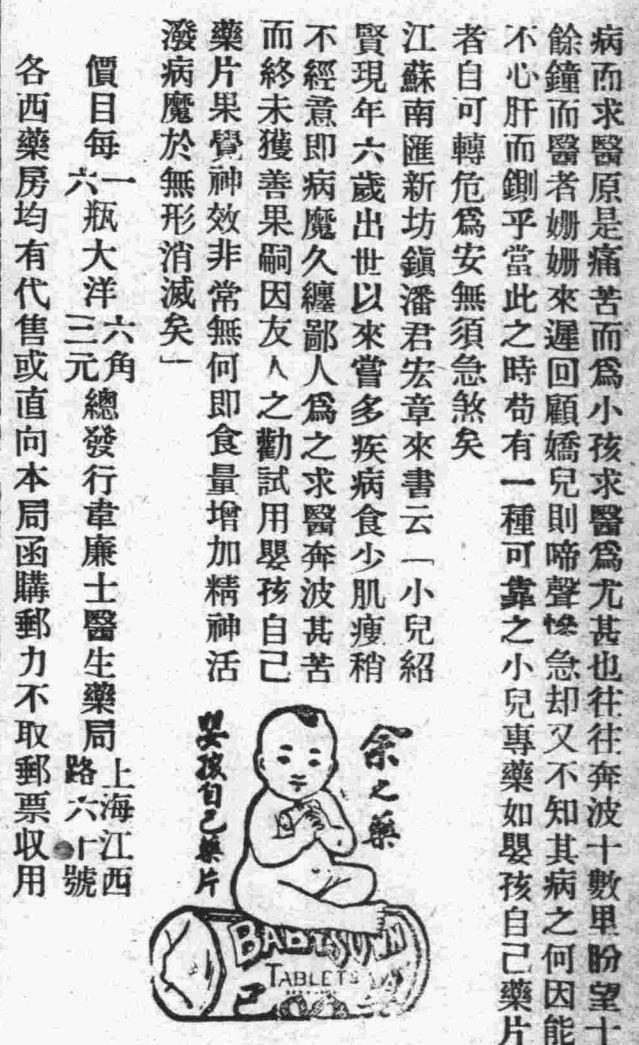 病而求醫原是痛苦而爲小孩求醫爲尤甚也往往奔波十數里盼望十
餘鐘而醫者姍姍來遲回顧嬌兒則啼聲慘急却又不知其病之何因能
不心肝而鍘乎當此之時苟有一種可靠之小兒專藥如嬰孩自己藥片
者自可轉危爲安無須急煞矣
江蘇南匯新坊鎭潘君宏章來書云「小兒紹
賢現年六歲出世以來嘗多疾病食少肌瘦稍
不經意即病魔久纏鄙人爲之求醫奔波甚苦
而終未獲善果嗣因友人之勸試用嬰孩自己
藥片果覺神效非常無何即食量增加精神活
潑病魔於無形消滅矣」
價目每一瓶大洋六角
六三元
總發行韋廉士醫生藥局上海江西
路六十號
各西藥房均有代售或直向本局函購郵力不取郵票收用
余之藥
嬰孩自己藥片
BABY'S OWN
TABLETS
己